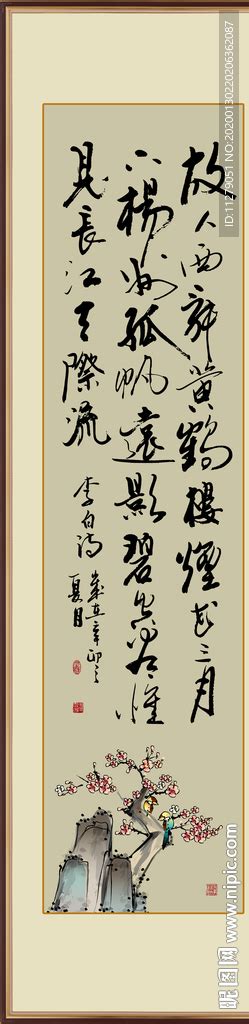 故人西辞黄鶴樓煙花三月
下楊州孤帆遠影碧空尽惟
見長江天際流
李白诗
歲在辛卯之
夏月
ID:11279051 NO:20200130220206362087
昵图网 www.nipic.com